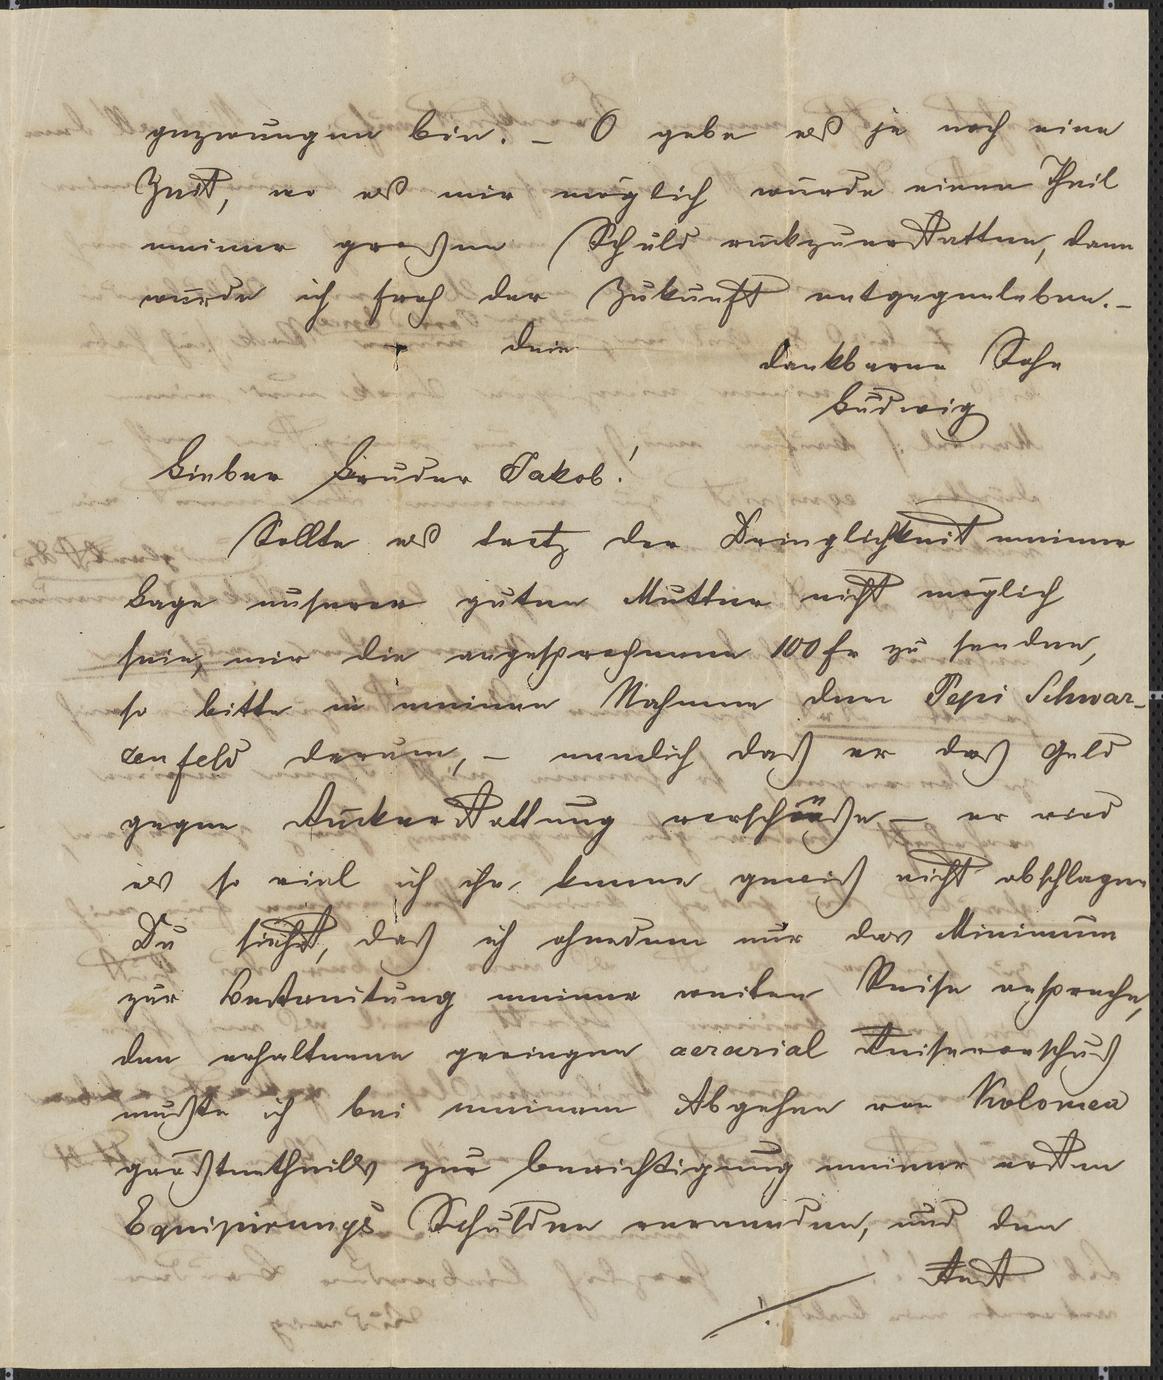 gezwungen bin. – O gebe es je noch eine
Zeit, wo es mir möglich würde einen Theil
meiner großen Schuld rückzuerstatten, dann
würde ich froh der Zukunft entgegenleben. –
Dein
dankbarer Sohn
Ludwig
Lieber Bruder Jakob!
Sollte es trotz der Dringlichkeit meiner
Lage unserer guten Mutter nicht möglich
sein, mir die angesprochenen 100 fr zu senden,
so bitte in meinen Nahmen den Pepi Schwar-
zenfeld darum, – nemlich daß er daß Geld
gegen Rückerstattung vorschieße – er wird
es so viel ich ihn kenne gewiß nicht abschlagen
Du siehst, daß ich ohnedem nur das Minimum
zur Bestreitung meiner weiten Reise anspreche,
den erhaltenen geringen aerarial Reisevorschuß
mußte ich bei meinem Abgehen von Kolomea
größtentheils zur berichtigung meiner ersten
Equipirungs Schulden verwenden, und den
Rest
./.